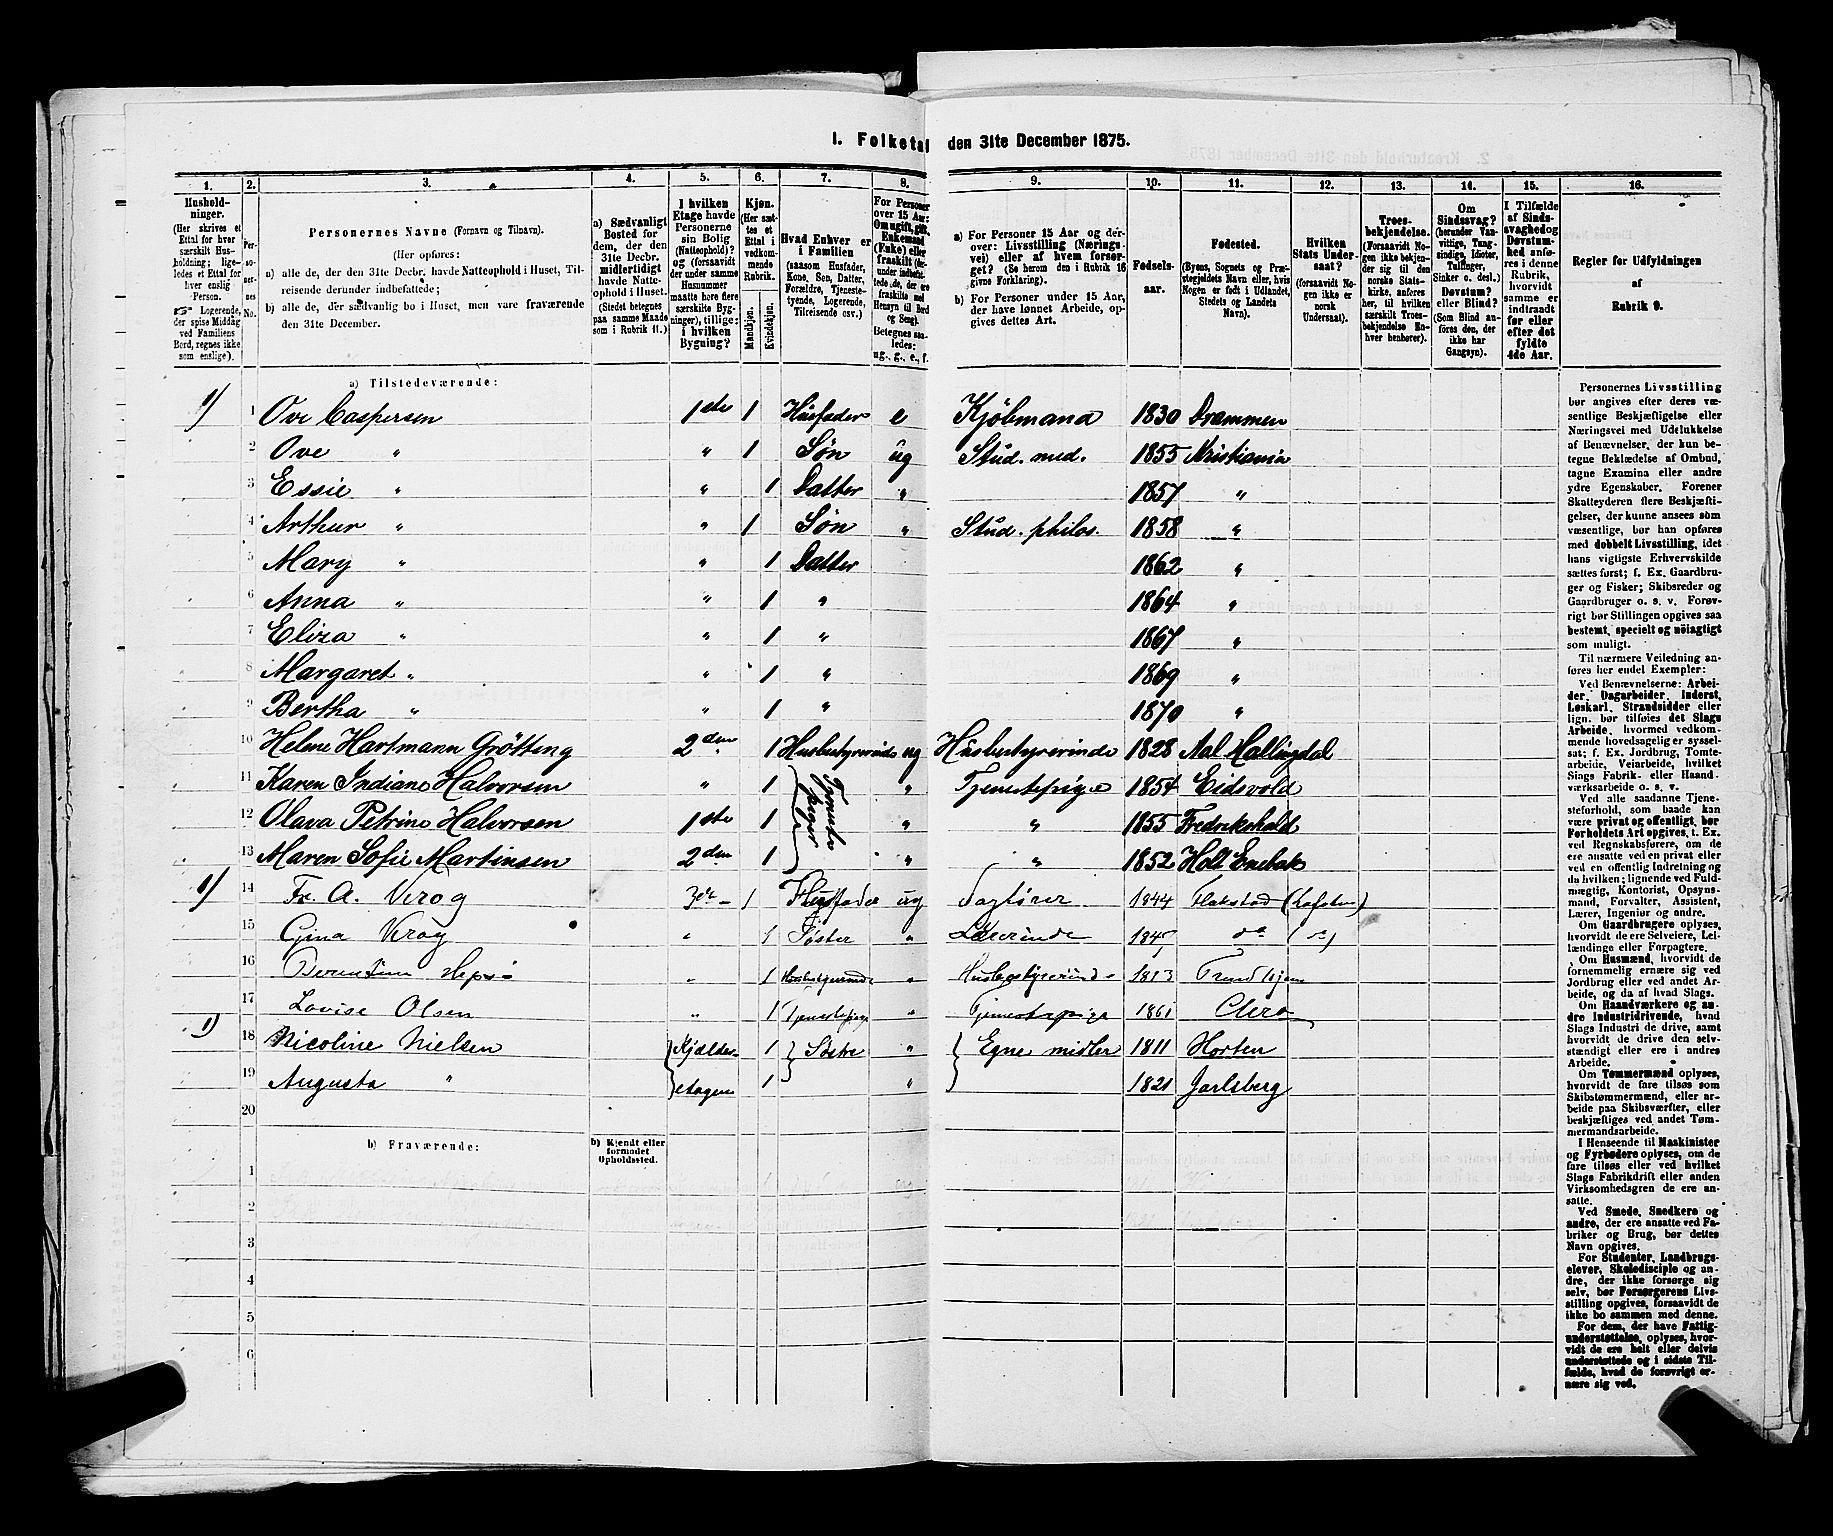 1. Folketal den 31te December 1875.
1. 2. 3. 4. 5. 6. 7. 8. 9. 10. 11. 12. 13. 14. 15. 16.
Hushold-
ninger.
(Her skrives et
Ettal for hver
særskilt Hus-
holdning; lige-
ledes et Ettal for
hver enslig
Person.
☞ Logerende,
der spise Middag
ved Familiens
Bord, regnes ikke
som enslige).
Per-
so-
ner-
nes
No.
Personernes Navne (Fornavn og Tilnavn).
(Her opføres:
a) alle de, der den 31te Decbr. havde Natteophold i Huset, Til-
reisende derunder indbefattede;
b) alle de, der sædvanlig bo i Huset, men vare fraværende
den 31te December.
a) Sædvanligt
Bosted for
dem, der den
31te Decbr.
midlertidigt
havde Natte-
ophold i Huset.
(Stedet betegnes
paa samme Maade
som i Rubrik 11.)
I hvilken
Etage havde
Personerne
sin Bolig
(Natteophold)?
og (forsaavidt
der under samme
Husnummer
maatte høre flere
særskilte Byg-
ninger), tillige:
i hvilken
Bygning?
Kjøn.
(Her sæt-
tes et
Ettal i
vedkom-
mende
Rubrik.
Mandkjøn.
Kvindekjøn.
Hvad Enhver er
i Familien
(saasom Husfader,
Kone, Søn, Datter,
Forældre, Tjeneste-
tyende, Logerende,
Tilreisende osv.)
For Personer
over 15 Aar:
Om ugift, gift,
Enkemand
(Enke) eller
fraskilt
Betegnes saa-
ledes:
ug., g., e., f.
a) For Personer 15 Aar og der-
over: Livsstilling (Nærings-
vei) eller af hvem forsør-
get? (Se herom den i Rubrik 16
givne Forklaring).
b) For Personer under 15 Aar,
der have lønnet Arbeide, op-
gives dettes Art.
Fødsels-
aar.
Fødested.
(Byens, Sognets og Præ-
stegjeldets Navn eller, hvis
Nogen er født i Udlandet,
Stedets og Landets
Navn).
Hvilken
Stats Under-
saat?
(forsaavidt No-
gen ikke er
norsk
Undersaat).
Troes-
bekjendelse.
(Forsaavidt No-
gen ikke bekjen-
der sig til den
norske Stats-
kirke, anføres
her, til hvilken
særskilt Troes-
bekjendelse En-
hver henhører).
Om
Sindssvag?
(herunder Van-
vittige, Tung-
sindige, Idioter,
Tullinger,
Sinker o. desl.)
Døvstum?
eller Blind?
(Som Blind an-
føres den, der
ikke har
Gangsyn).
I Tilfælde
af Sinds-
svaghed og
Døvstum-
hed anfø-
res i denne
Rubrik,
hvorvidt
samme er
indtraadt
før eller
efter det
fyldte
4de Aar.
Regler for Udfyldningen
af
Rubrik 9.
a) Tilstedeværende:
1) 1 Ove Caspersen 1ste 1 Husfader e Kjöbmand 1830 Drammen
2 Ove " " 1 Søn ug Stud. med. 1855 Kristiania
3 Essie " " 1 Datter " 1857 "
4 Arthur " " 1 Søn " Stud. philos. 1858 "
5 Mary " " 1 Datter 1862 "
6 Anna " " 1 " 1864 "
7 Eliza " " 1 " 1867 "
8 Margaret " " 1 " 1869 "
9 Bertha " " 1 " 1870 "
10 Helene Hartmann Grötting 2den 1 Husbestyrerinde ug Husbestyrerinde 1828 Aal Hallingdal
11 Karen Indiane Halvorsen " 1 Tjenestepiger " Tjenestepige 1854 Eidsvold
12 Olava Petrine Halvorsen 1ste 1 " " 1855 Fredrikshald
13 Maren Sofie Martinsen 2den 1 " " 1852 Holt Enebak
1) 14 Fr. A. Krog 3de 1 Husfader ug Sagfører 1844 Flakstad (Lofoten)
15 Gina Krog " 1 Søster " Lærerinde do (do)
16 " 1 Husbestyrerinde " Husbestyrerinde 1813 Trondhjem
17 Lovise Olsen " 1 Tjenestepige " Tjenestepige 1861
1) 18 Nicoline Nielsen Kjælder- 1 Søstre " Egne midler 1811 Horten
19 Augusta " etagen 1 " 1821 Jarlsberg
20
b) Fraværende:
b) Kjendt eller
formodet
Opholdssted.
1
2
3
4
5
6
Personernes Livsstilling
bør angives efter deres væ-
sentlige Beskjæftigelse eller
Næringsvei med Udelukkelse
af Benævnelser, der kun be-
tegne Beklædelse af Ombud,
tagne Examina eller andre
ydre Egenskaber. Forener
Skatteyderen flere Beskjæfti-
gelser, der kunne ansees som
væsentlige, bør han opføres
med dobbelt Livsstilling, idet
hans vigtigste Erhvervskilde
sættes først; f. Ex. Gaardbru-
ger og Fisker; Skibsreder og
Gaardbruger o. s. v. Forøv-
rigt bør Stillingen opgives saa
bestemt, specielt og nöiagtigt
som muligt.
Til nærmere Veiledning an-
føres her endel Exempler:
Ved Benævnelserne: Arbei-
der, Dagarbeider, Inderst,
Løskarl, Strandsidder eller
lign. bør tilføies det Slags
Arbeide, hvormed vedkom-
mende hovedsagelig er syssel-
sat; f. Ex. Jordbrug, Tomte-
arbeide, Veiarbeide, hvilket
Slags Fabrik- eller Haand-
værksarbeide o. s. v.
Ved alle saadanne Tjene-
steforhold, som baade kan
være privat og offentligt, bør
Forholdets Art opgives, t. Ex.
ved Regnskabsførere, om de
ere ansatte ved en privat eller
ved en offentlig Indretning og
da hvilken; lignende ved Fuld-
mægtig, Kontorist, Opsyns-
mand, Forvalter, Assistent,
Lærer, Ingeniør og andre.
Om Gaardbrugere oplyses,
hvorvidt de ere Selveiere, Lei-
lændinge eller Forpagtere.
Om Husmænd, hvorvidt de
fornemmelig ernære sig ved
Jordbrug eller ved andet Ar-
beide, og da af hvad Slags.
Om Haandværkere og an-
dre Industridrivende, hvad
Slags Industri de drive, samt
hvorvidt de drive den selv-
stændigt eller ere i andres
Arbeide.
Om Tømmermænd oplyses,
hvorvidt de fare tilsøs som
Skibstømmermænd, eller ar-
beide paa Skibsværfter, eller
beskjæftiges ved andet Tøm-
mermandsarbeide.
I Henseende til Maskinister
og Fyrbødere oplyses, om de
fare tilsøs eller ved hvilket
Slags Fabrikdrift eller anden
Virksomhedsgren de ere an-
satte.
Ved Smede, Snedkere og
andre, der ere ansatte ved Fa-
briker og Brug, bør dettes
Navn opgives.
For Studenter, Landbrugs-
elever, Skoledisciple og an-
dre, der ikke forsørge sig
selv, bør Forsørgerens Livs-
stilling opgives, forsaavidt de
ikke bo sammen med denne.
For dem, der have Fattig-
understøttelse, oplyses, hvor-
vidt de ere helt eller delvis
understøttede og i sidste Til-
fælde, hvad de forøvrigt er-
nære sig ved.